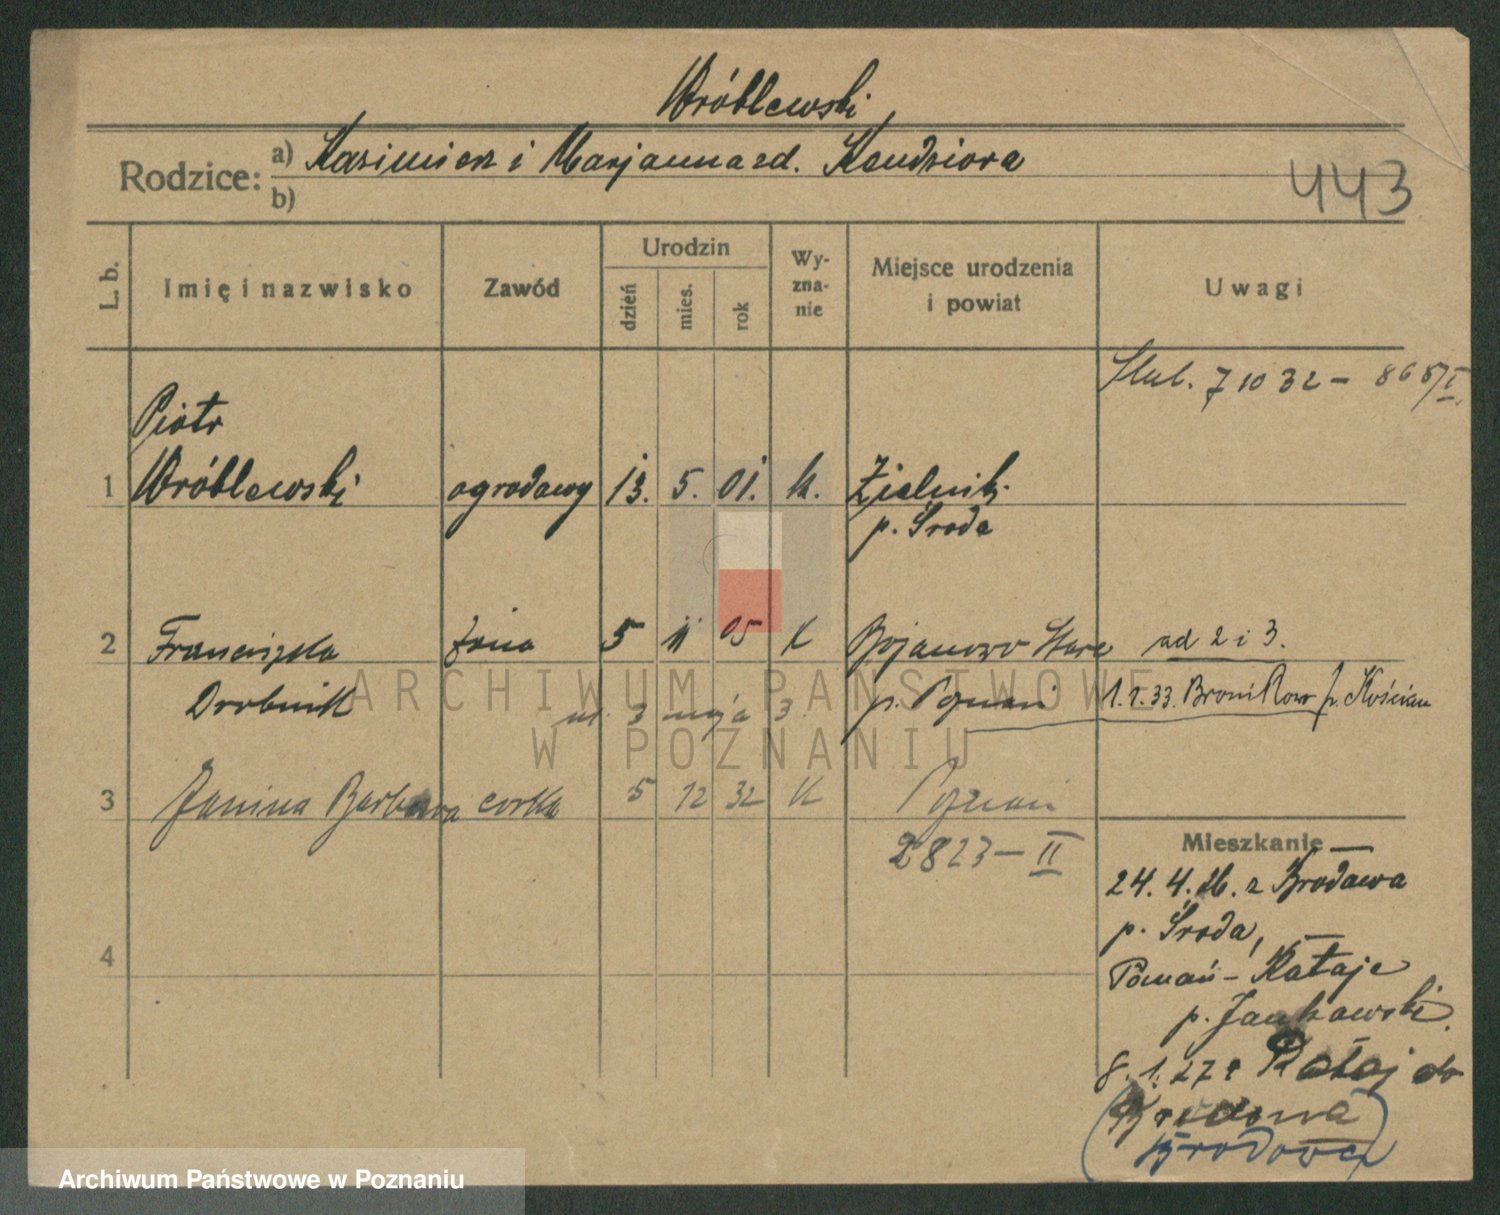 Wróblewski
Rodzice: a) Kazimierz i Marjanna zd. Kendziora
b)
443
L. b.
Imię i nazwisko
Zawód
Urodzin
dzień
mies.
rok
Wy-
zna-
nie
Miejsce urodzenia
i powiat
Uwagi
Ślub. 7 10 32 – 868/I.
Piotr
1 Wróblewski ogrodowy 13. 5. 01. k. Zielniki
p. Środa
2 Franciszka żona 5 11 05 K Bojanowo Stare ad 2 i 3.
Drobnik ul. 3 maja 3. p. Poznań 1.1.33. Bronikowo p. Kościan
3 Janina Barbara corka 5 12 32 K Poznań
2823 – II
Mieszkanie
24. 4. 26. z Brodowa
p. Środa,
4
Poznań – Rataje
p. Jankowski.
8. 1. 27 z Rataj do
Brodowa
Brodowa
ARCHIWUM PAŃSTWOWE
W POZNANIU
Archiwum Państwowe w Poznaniu